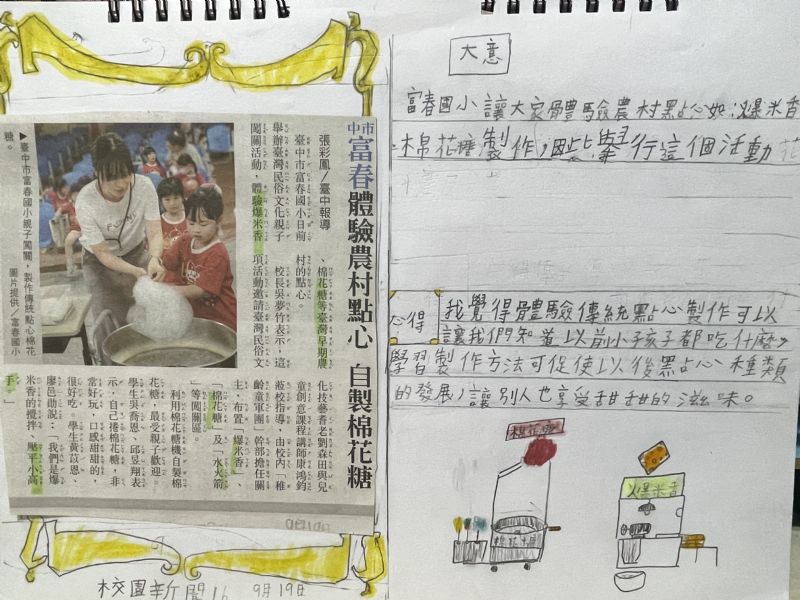 中市
富春體驗農村點心 自製棉花糖
張彩鳳／臺中報導
臺中市富春國小日前
舉辦臺灣民俗文化親子
闖關活動，體驗爆米香
、棉花糖等臺灣早期農
村的點心。
校長吳夢竹表示，這
項活動邀請臺灣民俗文
化技藝耆老劉森田與兒
童創意課程講師康鴻鈞
蒞校指導，由校內「稚
齡童軍團」幹部擔任關
主，布置「爆米香」、
「棉花糖」及「水火箭
」等闖關區。
利用棉花糖機自製棉
花糖，最受親子歡迎。
學生吳喬恩、邱昱翔表
示，自己捲棉花糖，非
常好玩，口感甜甜的，
很好吃。學生黃苡恩、
廖邑勛說：「我們是爆
米香的攪拌、壓平小高
手。」
▶臺中市富春國小親子闖關，製作傳統點心棉花
糖。
圖片提供／富春國小
9月19日
校園新聞16 9月19日
大意
富春國小讓大家體驗農村點心如:爆米香
、棉花糖製作,因此舉行這個活動
心得
我覺得體驗傳統點心製作可以
讓我們知道以前小孩子都吃什麼,
學習製作方法可促使以後點心種類
的發展,讓別人也享受甜甜的滋味。
棉花糖
爆米香